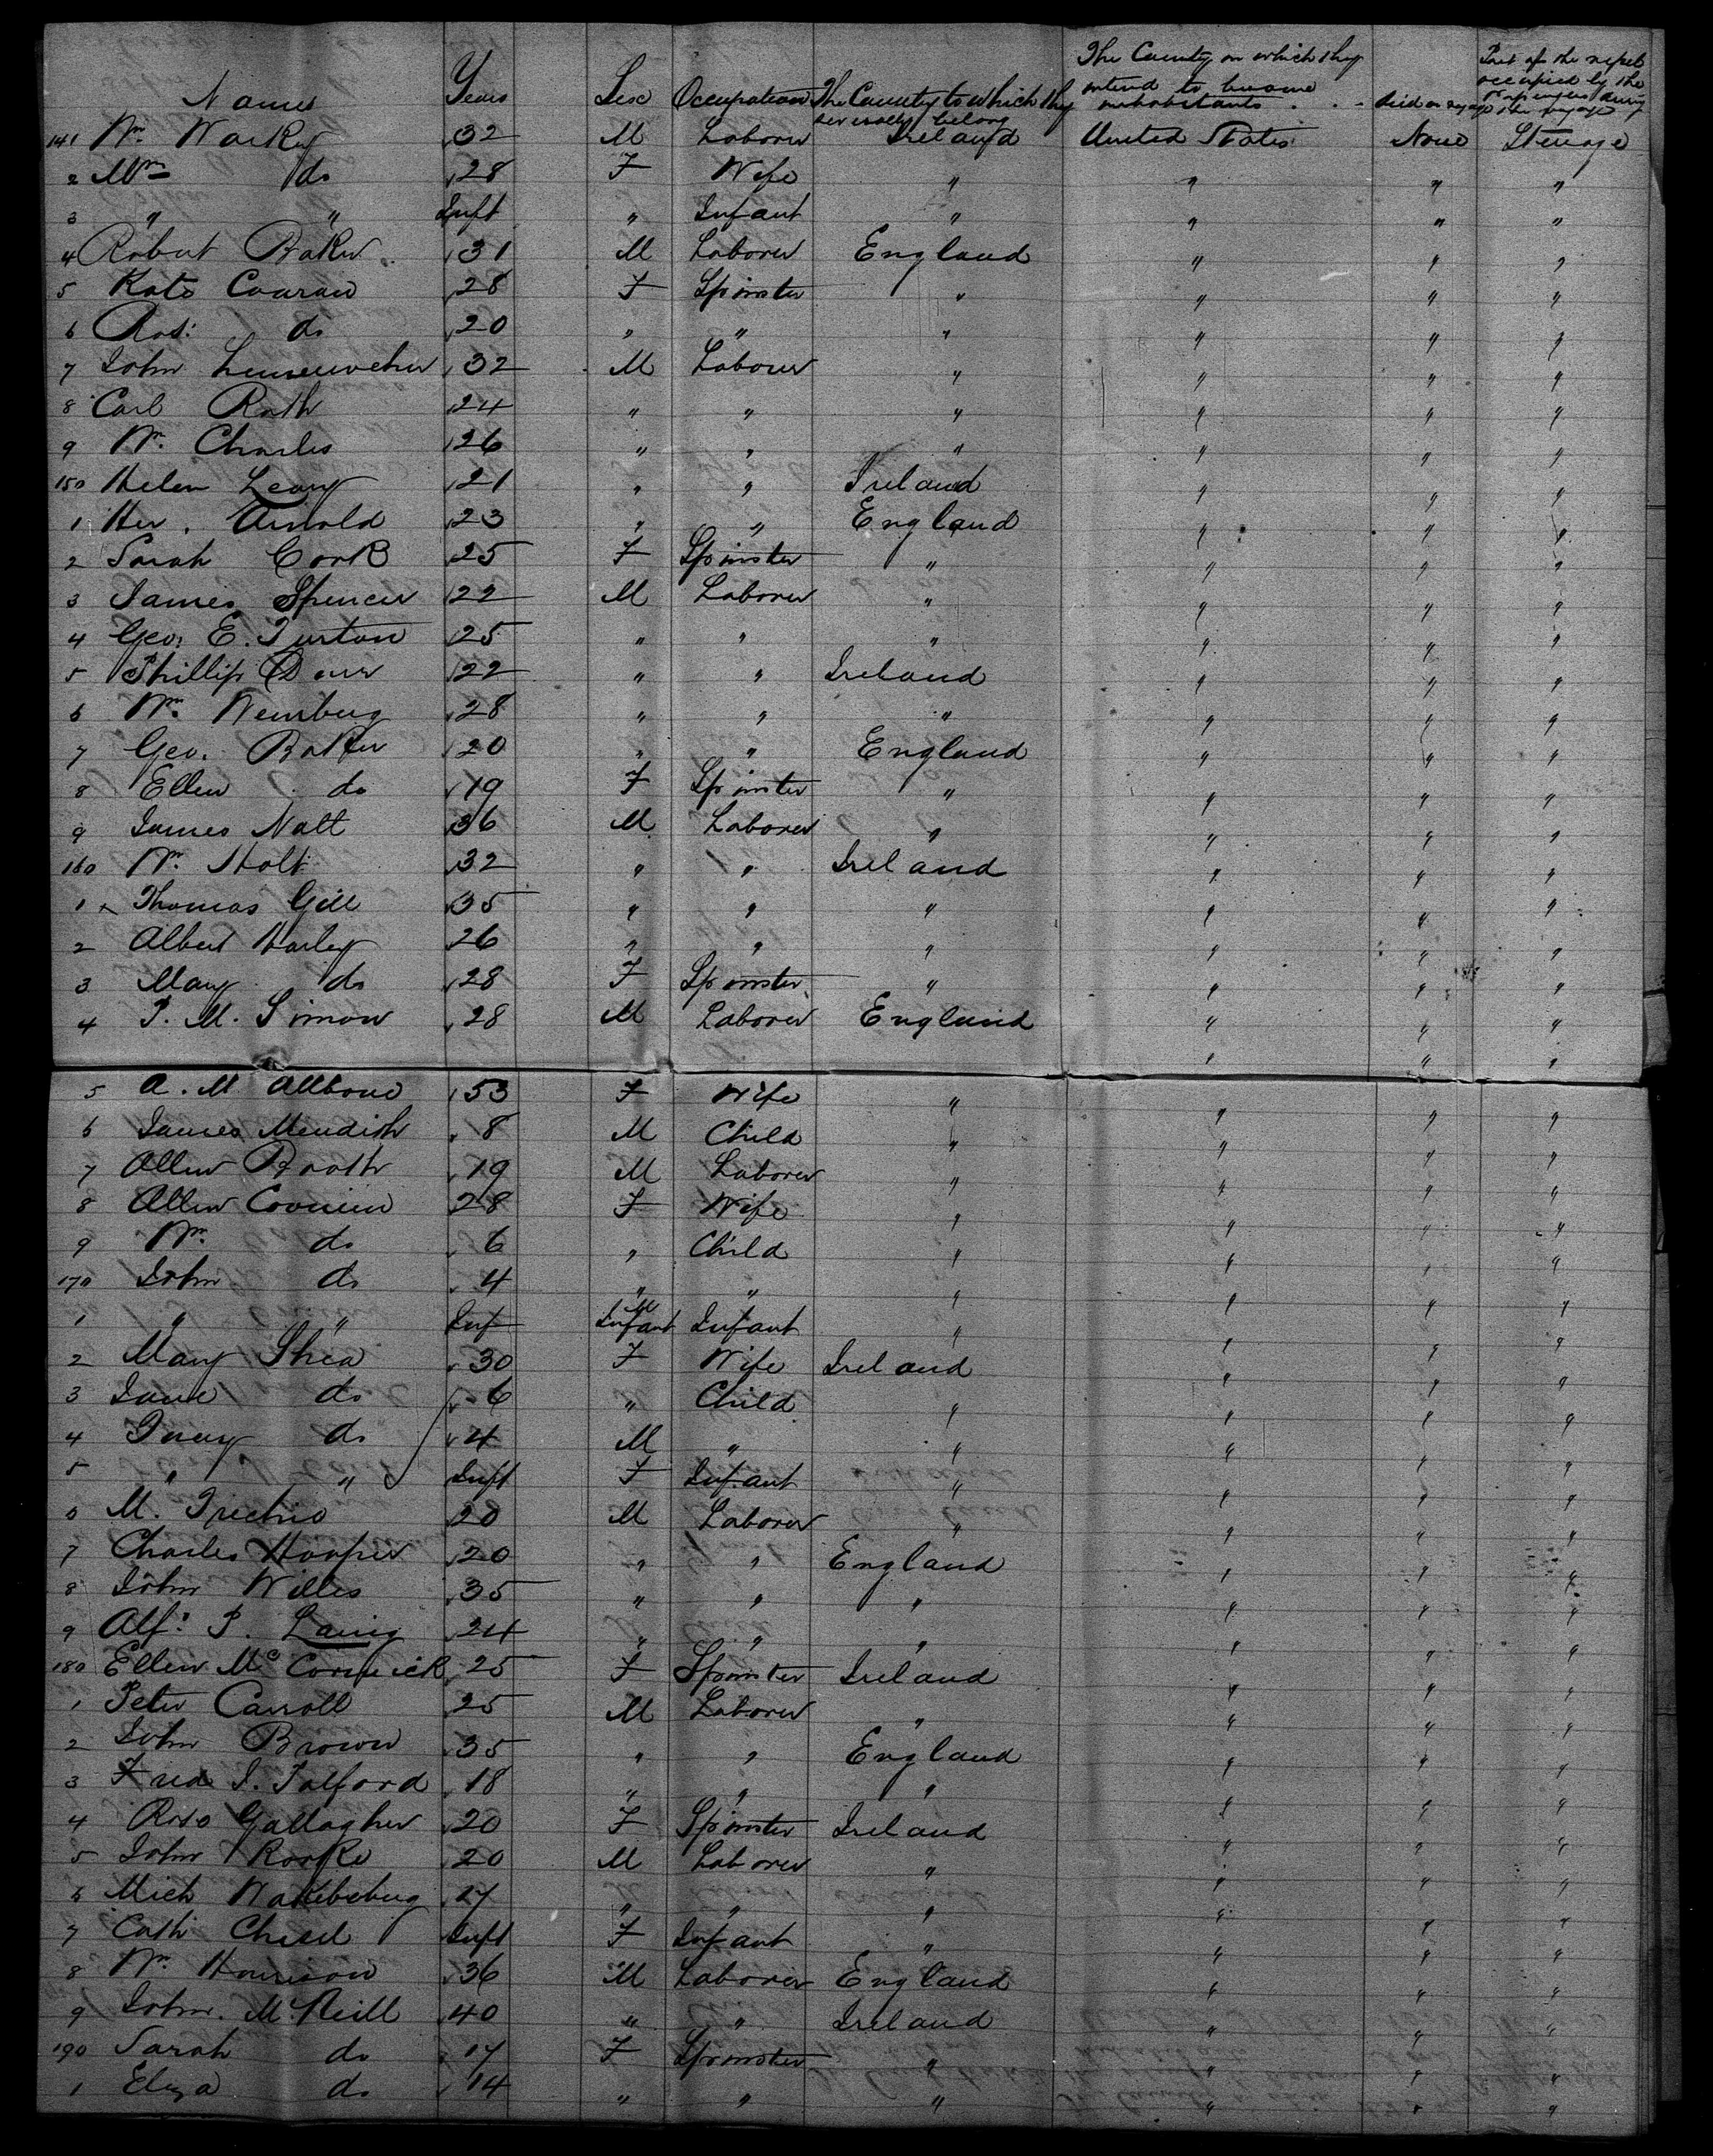 Names Years Sex Occupation The County to which they severally belong The County in which they intend to become inhabitants Died on voyage Part of the vessel occupied by the passengers during the voyage
141 Wm Warky 32 M Laborer Ireland United States None Steerage
2 Mrs do 28 F Wife " " " "
3 " " Inft " Infant " " " "
4 Robert Baker 31 M Laborer England " " "
5 Kate Couran 28 F Spinster " " " "
6 Ros: do 20 " " " " " "
7 John 32 M Laborer " " " "
8 Carl Roth 24 " " " " " "
9 Wm Charles 26 " " " " " "
150 Helen Leary 21 " " Ireland " " "
1 Her. Arnold 23 " " England " " "
2 Sarah Cork 25 F Spinster " " " "
3 James Spencer 22 M Laborer " " " "
4 Geo. E. Turton 25 " " " " " "
5 Phillip 22 " " Ireland " " "
6 Wm Wemburg 28 " " " " " "
7 Geo. Baker 20 " " England " " "
8 Ellen do 19 F Spinster " " " "
9 James Nall 36 M Laborer " " " "
160 Wm Holt 32 " " Ireland " " "
1 x Thomas Gill 35 " " " " " "
2 Albert Harley 26 " " " " " "
3 Mary do 28 F Spinster " " " "
4 P. M. Simon 28 M Laborer England " " "
" " "
5 A. M Allbone 53 F Wife " " " "
6 James Mendish 8 M Child " " " "
7 Allen Booth 19 M Laborer " " " "
8 Allen 28 F Wife " " " "
9 Wm do 6 " Child " " " "
170 John do 4 " " " " " "
1 " " Inf M Infant Infant " " " "
2 Mary Shea 30 F Wife Ireland " " "
3 Jane do 6 " Child " " " "
4 do 4 M " " " " "
5 " " Inft F Infant " " " "
6 M. 20 M Laborer " " " "
7 Charles Hooper 20 " " England " " "
8 John Willis 35 " " " " " "
9 Alf: P. Laing 24 " " " " " "
180 Ellen McCormick 25 F Spinster Ireland " " "
1 Peter Carroll 25 M Laborer " " " "
2 John Brown 35 " " England " " "
3 Fred J. Talford 18 " " " " " "
4 Rose Gallagher 20 F Spinster Ireland " " "
5 John Rorke 20 M Laborer " " " "
6 Mich 17 " " " " " "
7 Cath Chisel Inft F Infant " " " "
8 Wm Harrison 36 M Laborer England " " "
9 John McNeill 40 " " Ireland " " "
190 Sarah do 17 F Spinster " " " "
1 Eliza do 14 " " " " " "